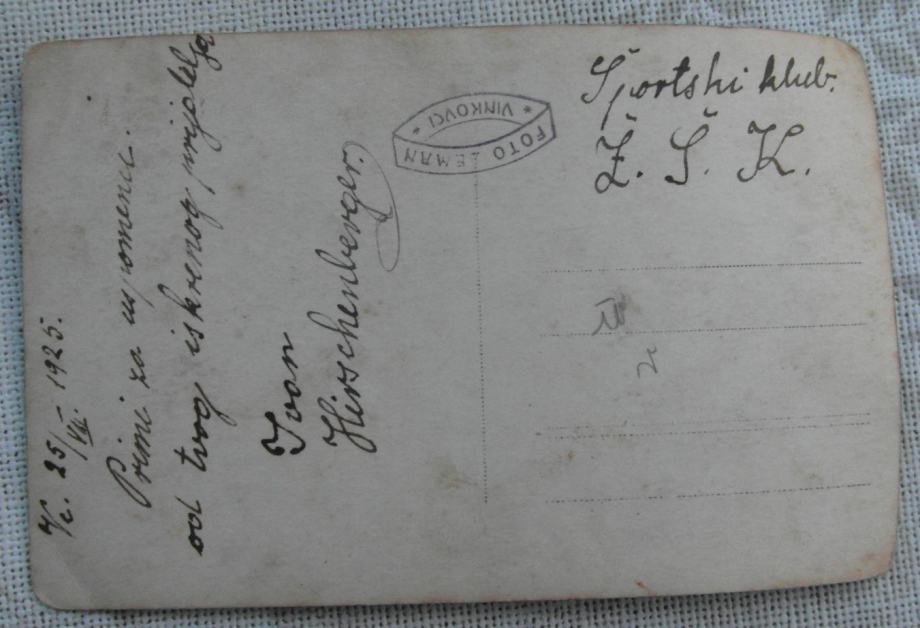 Vc. 25/VII. 1925.
Primi za uspomenu.
od tvog iskrenog prijatelja
Ivan
Hirschenberger.
* VINKOVCI *
FOTO ZEMAN
Športski klub.
Ž. Š. K.